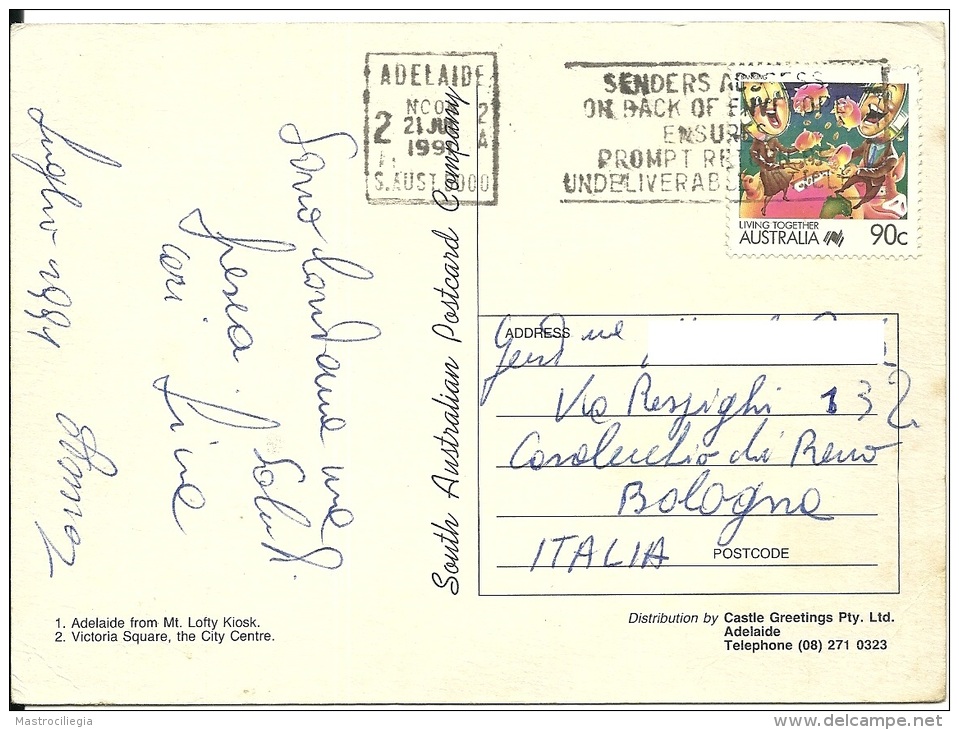 ADELAIDE
2
1991
S. AUST 5000
SENDERS ADDRESS
ON BACK OF ENVELOPE
ENSURES
PROMPT RETURN OF
UNDELIVERABLE ARTICLES
LIVING TOGETHER
AUSTRALIA 90c
Luglio 1991
Sono lontano ma
Spesso
cari
South Australian Postcard Company
ADDRESS
Via Respighi 132
Casalecchio di Reno
Bologna
ITALIA
POSTCODE
1. Adelaide from Mt. Lofty Kiosk.
2. Victoria Square, the City Centre.
Distribution by Castle Greetings Pty. Ltd.
Adelaide
Telephone (08) 271 0323
Mastrociliegia
www.delcampe.net